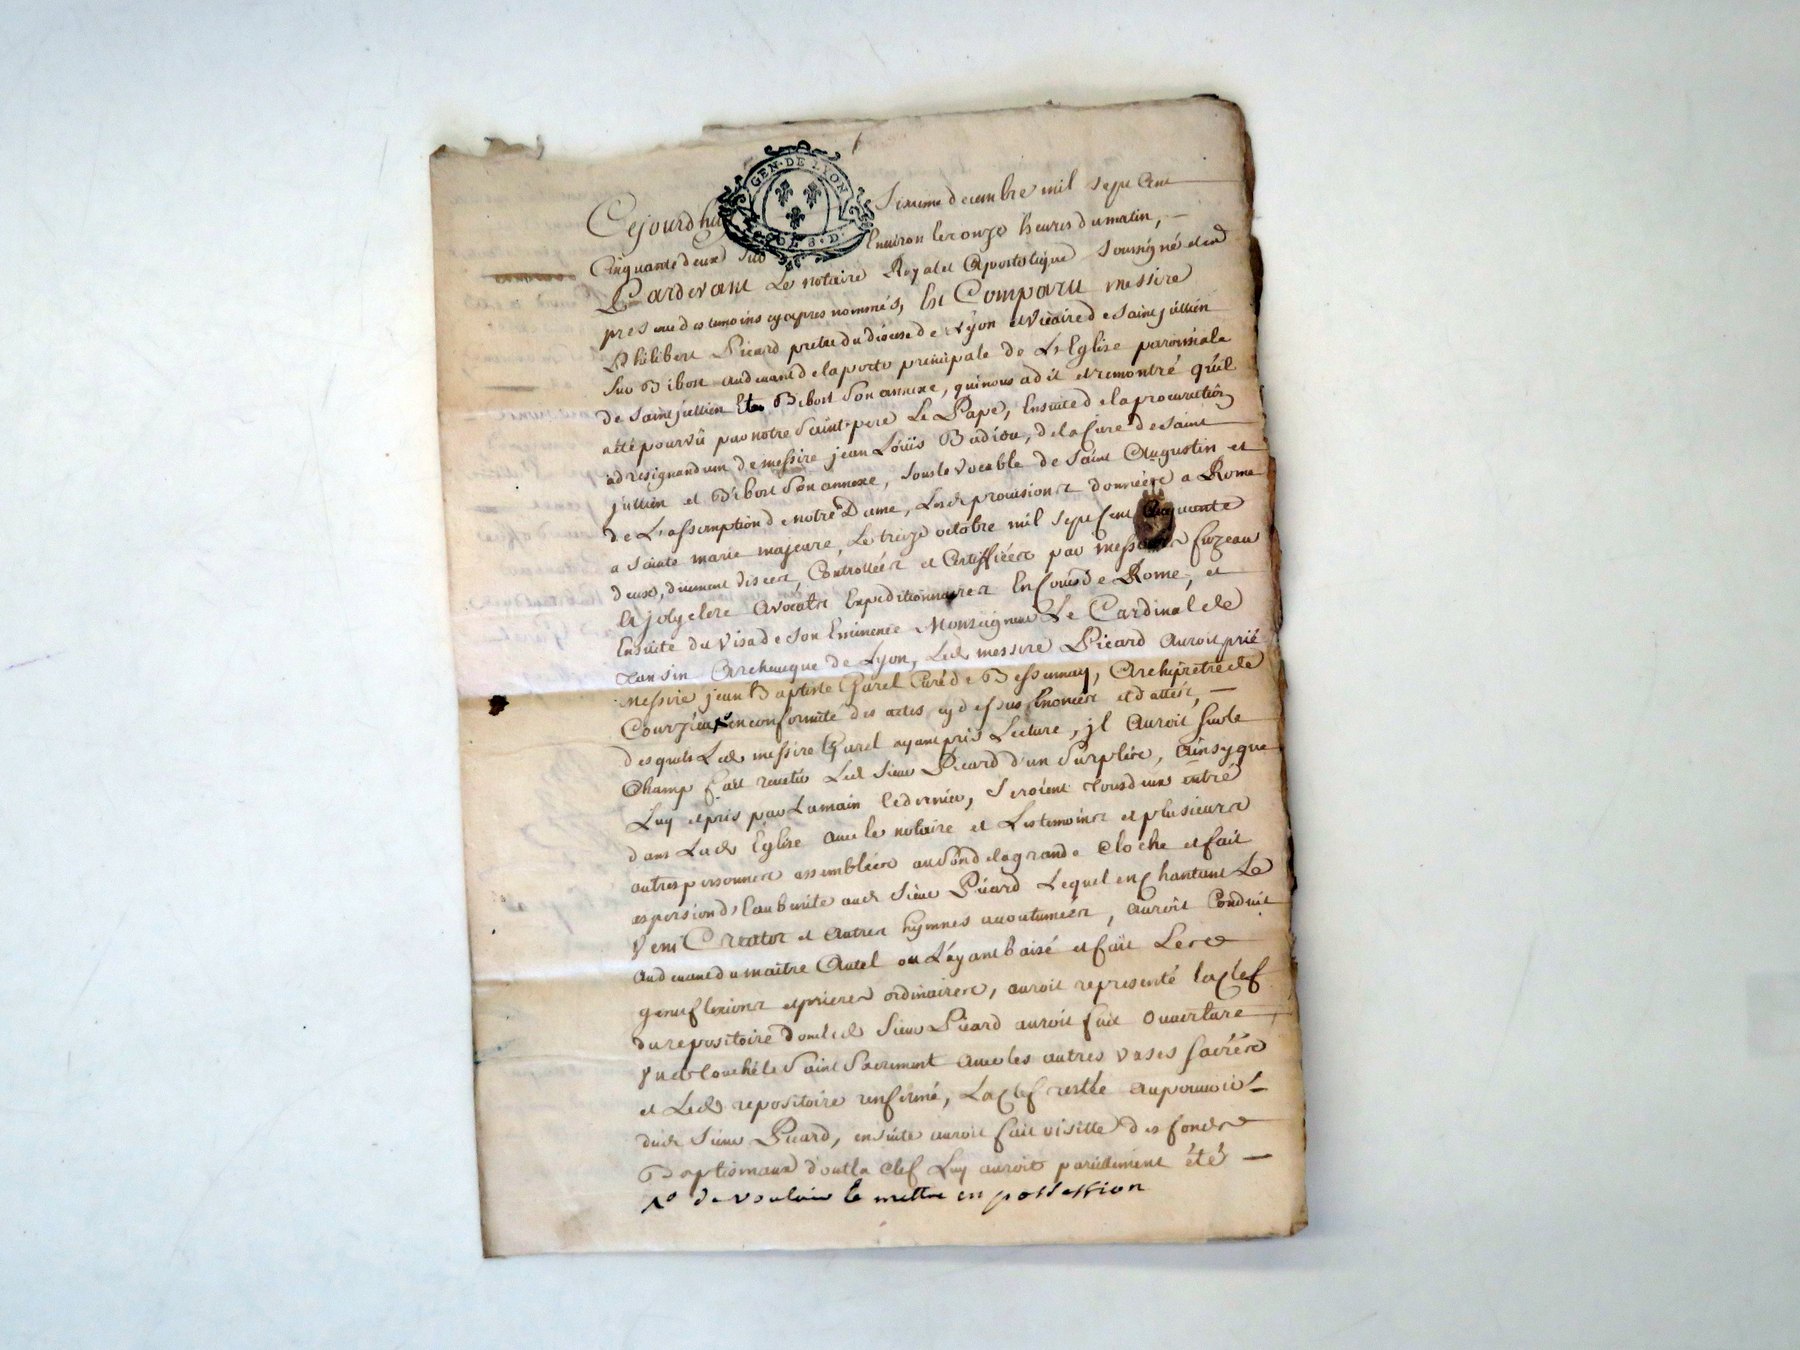 GEN. DE LYON
SOLS. D.
Cejourdhuy Sixieme decembre mil sept Cent
Cinquante deux Sur Environ les onze heures du matin,
Pardevant Le notaire Royal et Apostolique Soussigné et en
presence des temoins cy apres nommés, Est Comparu messire
Philibert Picard pretre du diocese de Lyon et vicaire de Saint jullien
Sur Bibost au devant de la porte principale de L'Eglise paroissiale
de Saint jullien Et Bibost Son annexe, qui nous a dit et remontré qu'il
a été pourvû par notre Saint pere Le Pape, Ensuite de la procuration
ad resignandum de messire jean Loüis Badiou, de la Cure de Saint
jullien et Bibost Son annexe, Sous le vocable de Saint Augustin et
de L'assomption de notre Dame, Lesd provisions données a Rome
a Sainte marie majeure, Le treize octobre mil sept Cent Cinquante
deux, düement Controllées et Certiffiées par messieurs fuzeau
et jolyclerc avocats Expeditionnaires En Cour de Rome, et
Ensuite du Visa de Son Eminence Monseigneur Le Cardinal de
Tansin Archeveque de Lyon, Led messire Picard auroit prié
Messire jean Baptiste Garel Curé de Bessenay, Archiprêtre de
Courzieu en conformité des actes cy dessus Enoncés et dattés,
desquels Led messire Garel ayant pris Lecture, jl auroit Sur le
Champ fait revetir Led Sieur Picard d'un Surplice, Ainsy que
Luy et pris par La main Ce dernier, Seroient tous deux entré
dans Lad Eglise avec le notaire et Les temoins et plusieurs
autres personnes assemblées au Son de la grande Cloche et fait
aspersion d'Eau benite aud Sieur Picard Lequel en Chantant Le
Veni Creator et autres hymnes accoutumées, auroit Conduit
au devant du maitre Autel ou L'ayant baisé et fait Les
genuflexions et prieres ordinaires, auroit representé la Clef
du repositoire dont led Sieur Picard auroit fait ouverture
Vu et touché le Saint Sacrement avec les autres vases Sacrés
et Led repositoire renfermé, La Clef restée au pouvoir
dud Sieur Picard, ensuite auroit fait visitte des fonds
Baptismaux dont la Clef Luy auroit pareillement été
de vouloir le mettre en possession